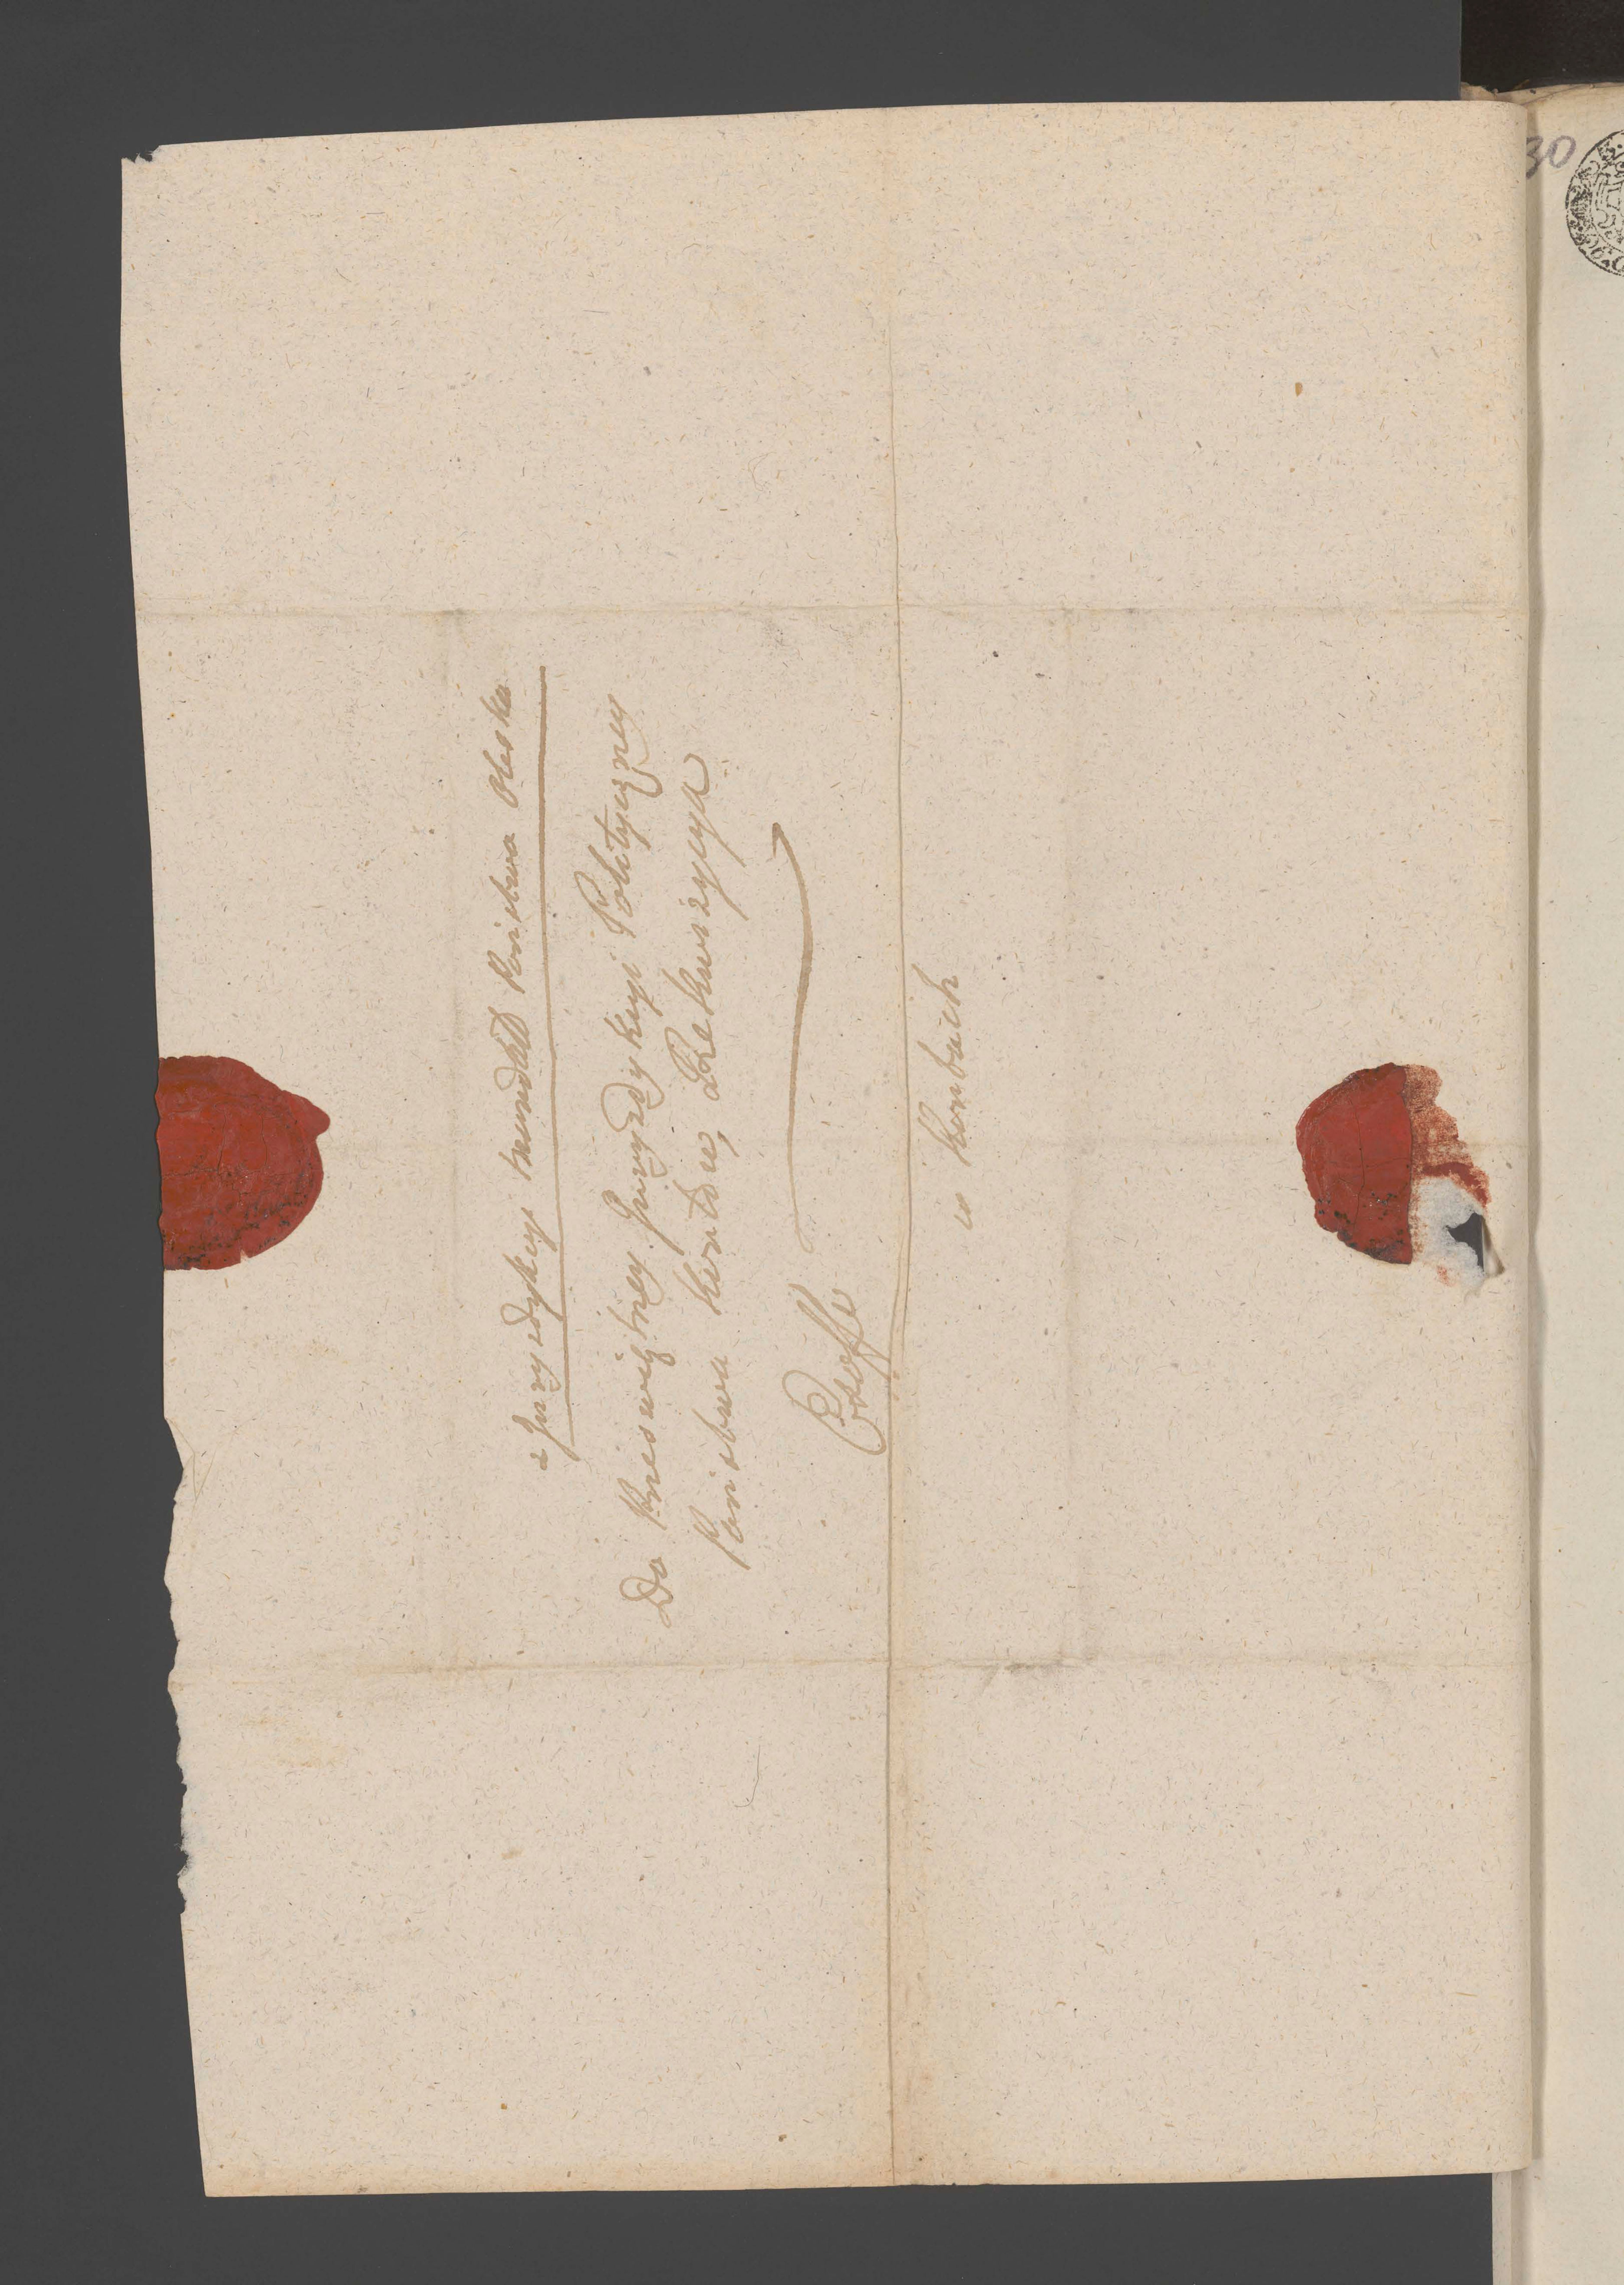 z Juryzdykcyi Państwa Oleska
Do Przeświętney Juryzdykcyi Polityczney
Państwa Kontów, Rekwizycya
Exoffo
w Kontach
30